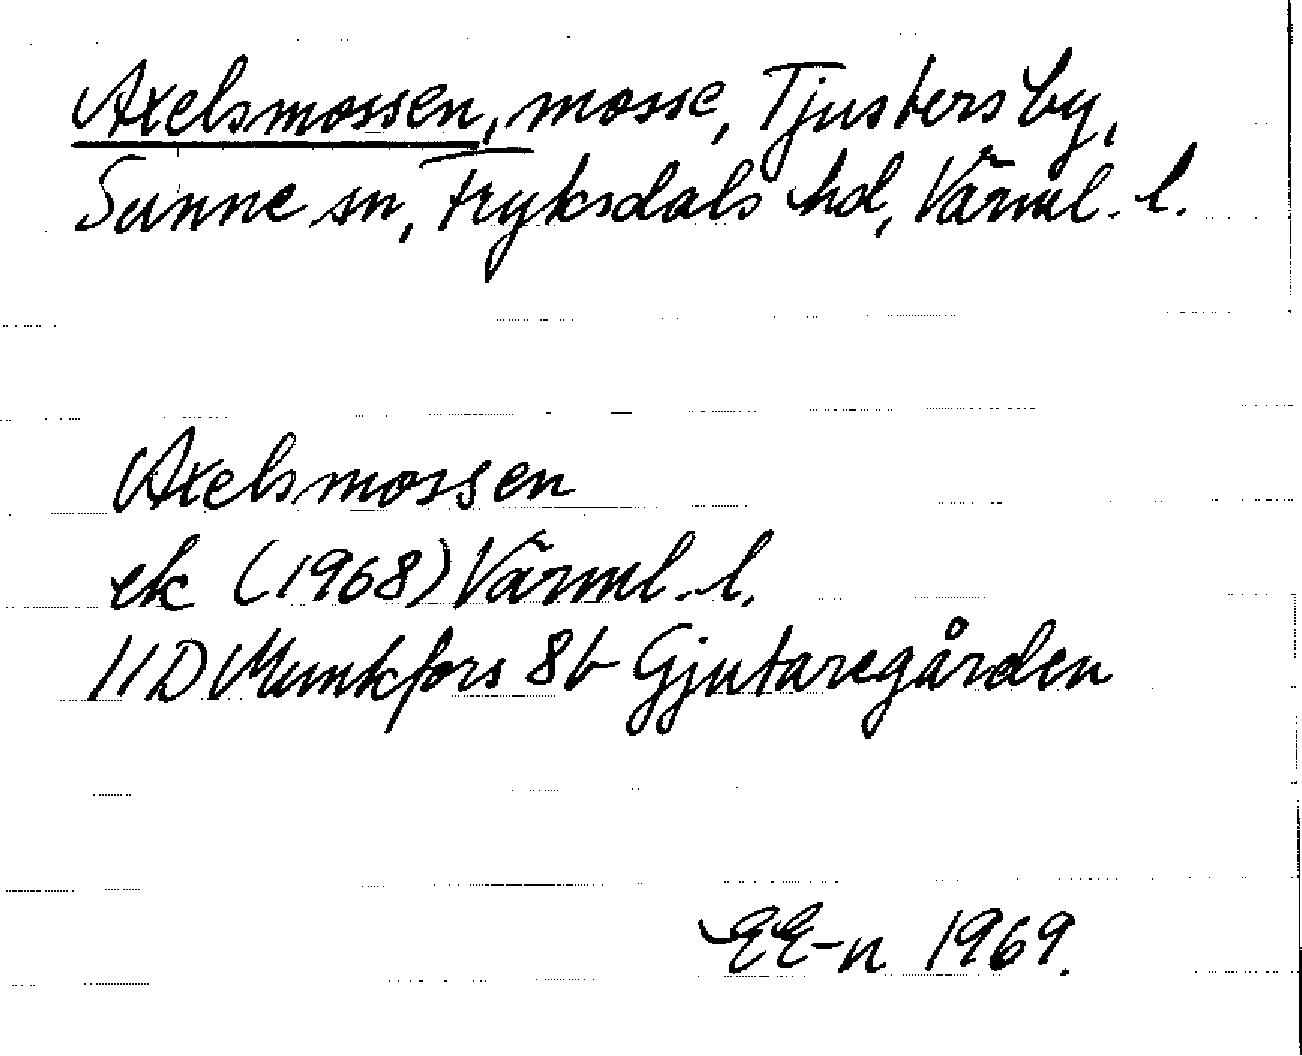 Axelsmossen, mosse, Tjusters by,
Sunne sn, Fryksdals hd, Värml. l.
Axelsmossen
ek (1968) Värml. l.
11D Munkfors 8b Gjutaregården
EE-n 1969.